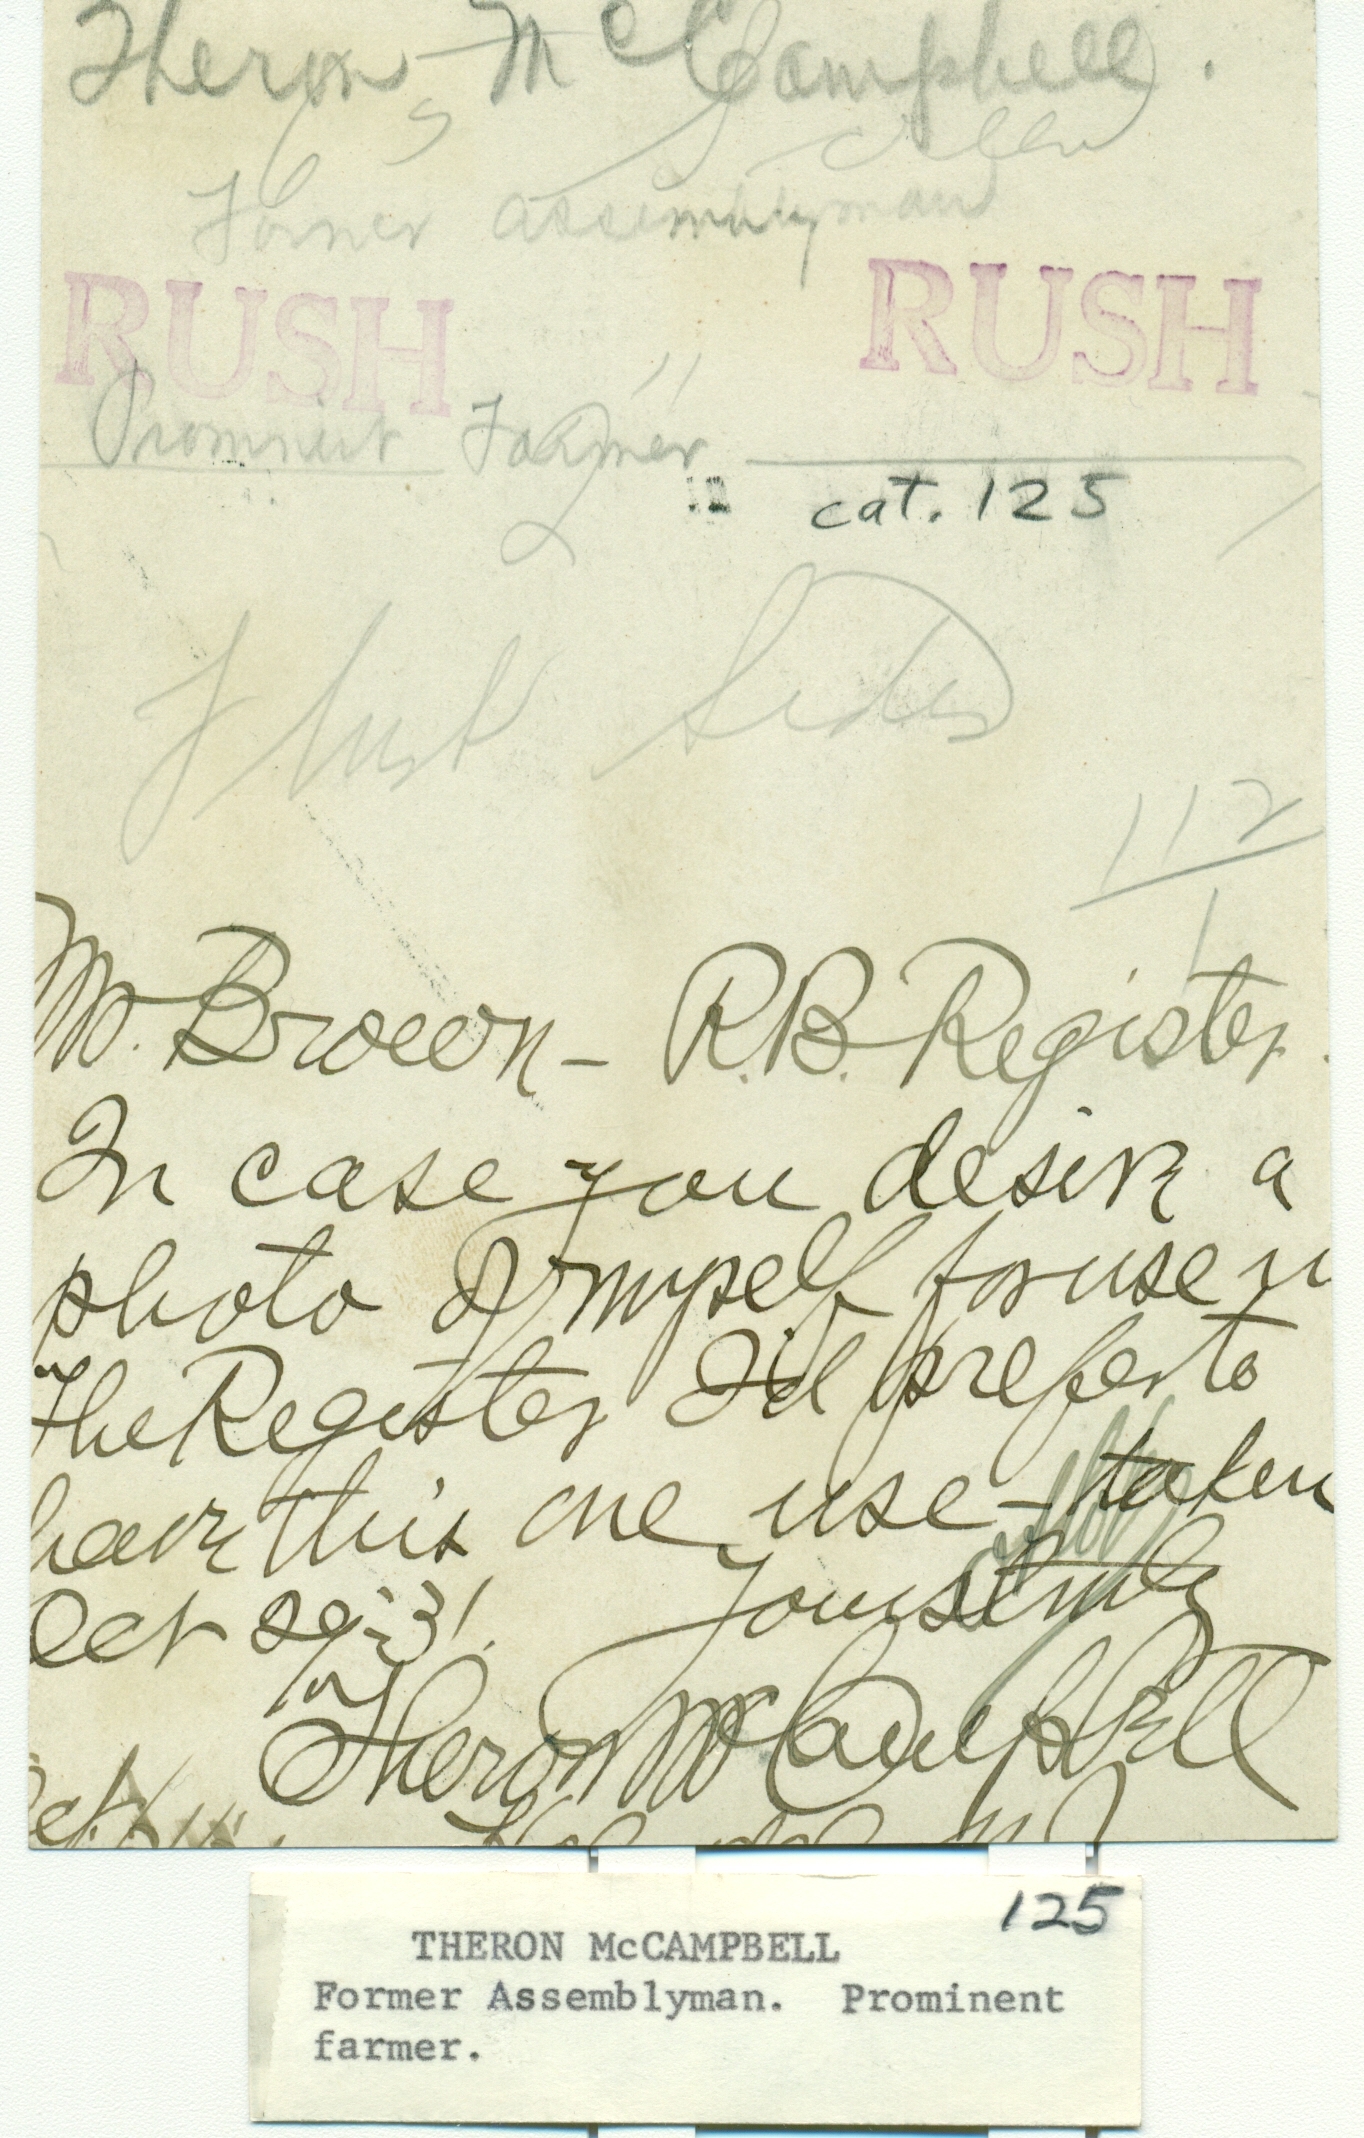 Theron McCampbell.
65
Former assemblyman
RUSH RUSH
Prominent Farmer
cat. 125
112
1
Mr. Brown - R.B. Register.
In case you desire a
photo of myself for use in
the Register I'd prefer to
have this one use - taken
Oct 29-31. Yours truly
Theron McCampbell
125
THERON McCAMPBELL
Former Assemblyman. Prominent
farmer.